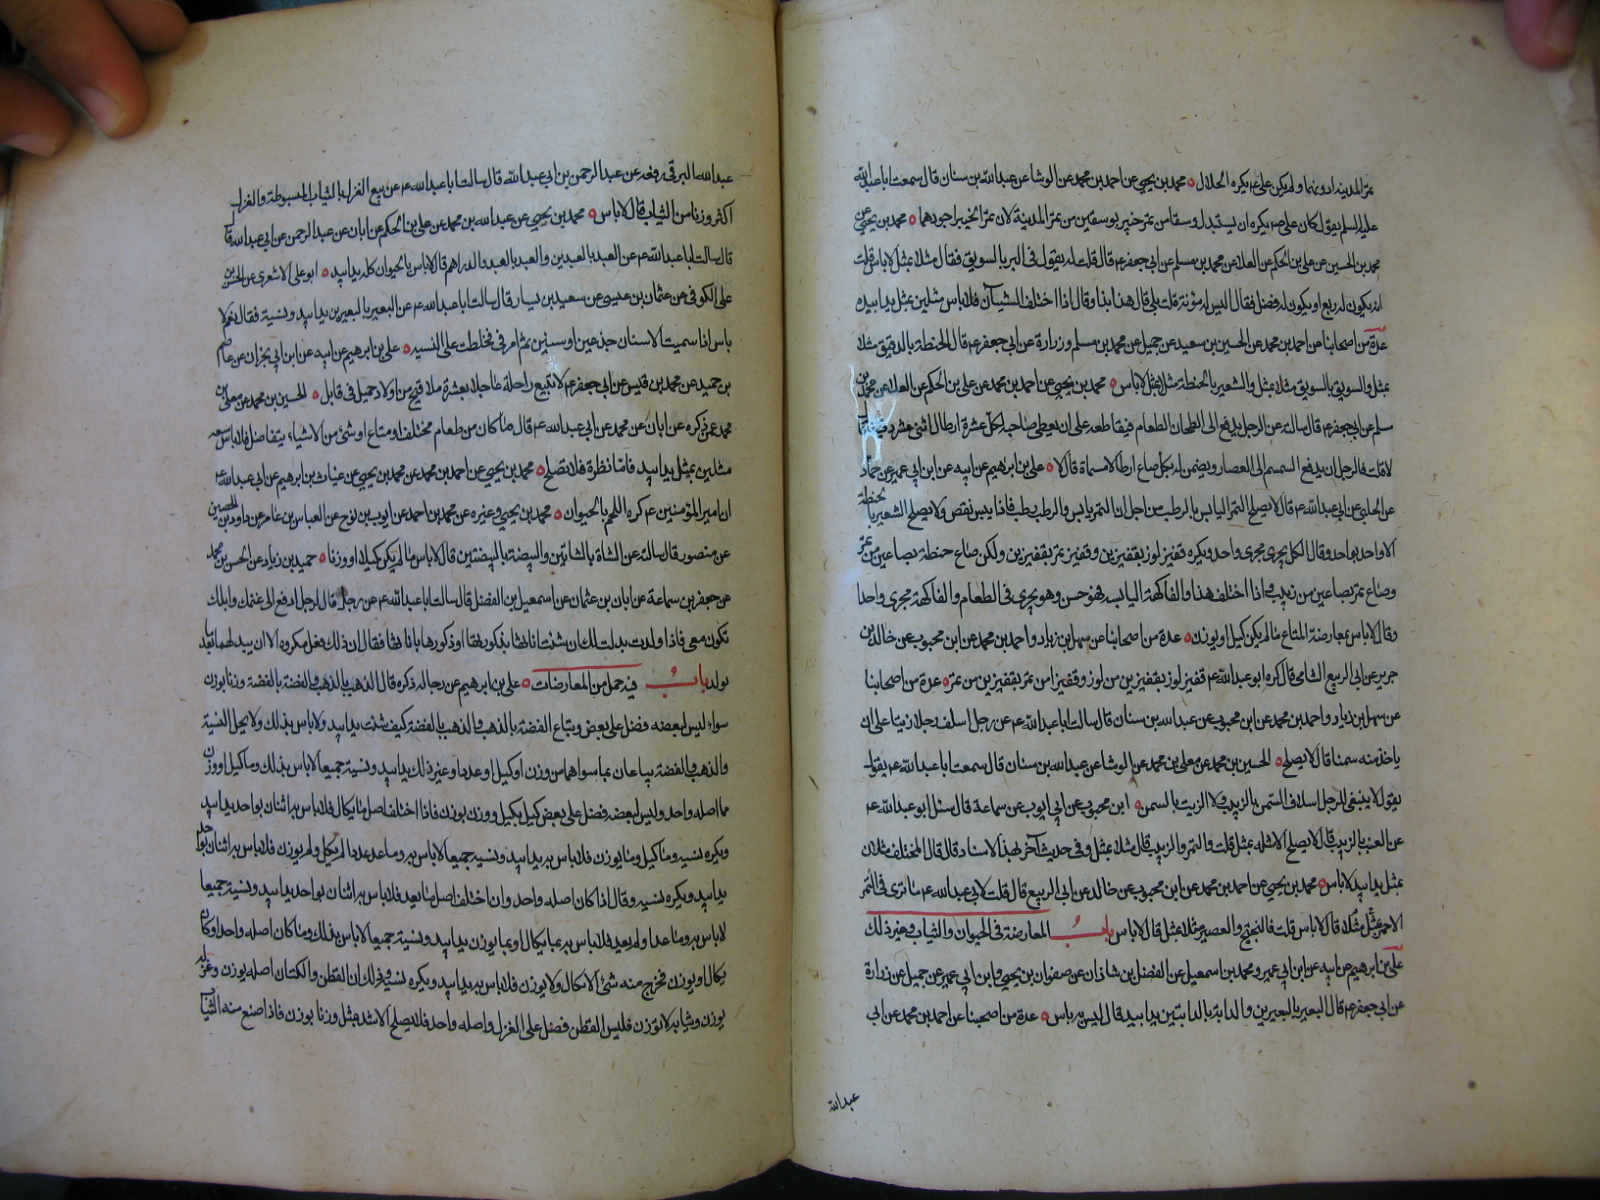 تمر المدينة ادونهما ولم يكن علي ع يكره الحلال محمد بن يحيى عن احمد بن محمد عن الوشا عن عبدالله بن سنان قال سمعت ابا عبدالله
عليه السلم يقول كان علي ع يكره ان يستبدل وسقا من تمر خيبر بوسقين من تمر المدينة لان تمر الخيبر اجودهما محمد بن يحيى عن
محمد بن الحسين عن علي بن الحكم عن العلا عن محمد بن مسلم عن ابي جعفر ع قال قلت له ما تقول في البر بالسويق فقال مثلا بمثل لاباس قلت
انه يكون له ريع او يكون له فضل فقال اليس له مؤنة قلت بلى قال هذا بذا وقال اذا اختلف الشيئان فلاباس مثلين بمثل يدا بيد
عدة من اصحابنا عن احمد بن محمد عن الحسين بن سعيد عن جميل عن محمد بن مسلم وزرارة عن ابي جعفر ع قال الحنطة بالدقيق مثلا
بمثل والسويق بالسويق مثلا بمثل والشعير بالحنطة مثلا بمثل لاباس محمد بن يحيى عن احمد بن محمد عن علي بن الحكم عن العلا عن محمد بن
مسلم عن ابي جعفر ع قال سالته عن الرجل يدفع الى الطحان الطعام فيقاطعه على ان يعطي صاحبه لكل عشرة ارطال اثنى عشر
لا قلت فالرجل يدفع السمسم الى العصار ويضمن له بكل صاع ارطالا مسماة قال لا علي بن ابراهيم عن ابيه عن ابن ابي عمير عن حماد
عن الحلبي عن ابي عبدالله ع قال لا يصلح التمر اليابس بالرطب من اجل ان التمر يابس والرطب رطب فاذا يبس نقص ولا يصلح الشعير بالحنطة
الا واحد بواحد وقال الكل يجري مجرى واحد ويكره قفيز لوز بقفيزين وقفيز تمر بقفيزين ولكن صاع حنطة بصاعين من تمر
وصاع تمر بصاعين من زبيب واذا اختلف هذا والفاكهة اليابسة فهو حسن وهو يجري في الطعام والفاكهة مجرى واحدا
وقال لاباس بمعارضة المتاع ما لم يكن كيل او يوزن عدة من اصحابنا عن سهل بن زياد واحمد بن محمد عن ابن محبوب عن خالد بن
جرير عن ابي الربيع الشامي قال كره ابو عبدالله ع قفيز لوز بقفيزين من لوز وقفيزا من تمر بقفيزين من تمر عدة من اصحابنا
عن سهل بن زياد واحمد بن محمد عن ابن محبوب عن عبدالله بن سنان قال سالت ابا عبدالله ع عن رجل اسلف رجلا زيتا على ان
ياخذ منه سمنا قال لا يصلح الحسين بن محمد عن معلى بن محمد عن الوشا عن عبدالله بن سنان قال سمعت ابا عبدالله ع يقول
يقول لا ينبغي للرجل اسلاف السمن بالزيت ولا الزيت بالسمن ابن محبوب عن ابي ايوب عن سماعة قال سئل ابو عبدالله ع
عن العنب بالزبيب قال لا يصلح الا مثلا بمثل قلت والتمر والزبيب قال مثلا بمثل وفي حديث آخر بهذا الاسناد قال قال المختلف مثلان
بمثل يدا بيد لاباس محمد بن يحيى عن احمد بن محمد عن ابن محبوب عن خالد عن ابي الربيع قال قلت لابي عبدالله ع ما ترى في التمر
الاحمر بمثل مثلا قال لاباس قلت فالبختج والعصير مثلا بمثل قال لاباس باب المعارضة في الحيوان والثياب وغير ذلك
علي بن ابراهيم عن ابيه عن ابن ابي عمير ومحمد بن اسمعيل عن الفضل بن شاذان عن صفوان بن يحيى وابن ابي عمير عن جميل عن زرارة
عن ابي جعفر ع قال البعير بالبعيرين والدابة بالدابتين يدا بيد قال ليس به باس عدة من اصحابنا عن احمد بن محمد عن ابي
عبدالله
عبدالله البرقي رفعه عن عبد الرحمن بن ابي عبدالله قال سالت ابا عبدالله ع عن بيع الغزل بالثياب المبسوطة والغزل
اكثر وزنا من الثياب قال لاباس محمد بن يحيى عن عبدالله بن محمد عن علي بن الحكم عن ابان عن عبد الرحمن عن ابي عبدالله
قال سالت ابا عبدالله ع عن العبد بالعبدين والعبد بالعبد والدراهم قال لاباس بالحيوان كله يدا بيد ابو علي الاشعري عن الحسن بن
علي الكوفي عن عثمان بن عيسى عن سعيد بن يسار قال سالت ابا عبدالله ع عن البعير بالبعيرين يدا بيد ونسية فقال نعم لا
باس اذا سميت الاسنان جذعين او سنين ثم امرني فخططت على النسيه علي بن ابراهيم عن ابيه عن ابن ابي نجران عن عاصم
بن حميد عن محمد بن قيس عن ابي جعفر ع لا تبيع راحلة عاجلا بعشرة ملاقيح من اولاد جميل في قابل الحسين بن محمد عن معلى بن
محمد عمن ذكره عن ابان عن محمد عن ابي عبدالله ع قال ما كان من طعام مختلف او متاع او شئ من الاشياء يتفاضل فلاباس ببيعه
مثلين بمثل يدا بيد فاما نظرة فلا تصلح محمد بن يحيى عن احمد بن محمد عن محمد بن يحيى عن غياث بن ابراهيم عن ابي عبدالله ع
ان امير المؤمنين ع كره اللحم بالحيوان محمد بن يحيى وغيره عن محمد بن احمد عن ايوب بن نوح عن العباس بن عامر عن داود بن الحصين
عن منصور قال سالته عن الشاة بالشاتين والبيضة بالبيضتين قال لاباس ما لم يكن كيلا او وزنا حميد بن زياد عن الحسن بن محمد
عن جعفر بن سماعة عن ابان بن عثمان عن اسمعيل بن الفضل قال سالت ابا عبدالله ع عن رجل قال لرجل ادفع الي غنمك وابلك
تكون معي فاذا ولدت بدلت لك ان شئت اناثها بذكورها او ذكورها باناثها فقال ان ذلك فعل مكروه الا ان يبدلها بعد ما
تولد باب فيه جمل من المعارضات علي بن ابراهيم عن رجاله ذكره قال الذهب بالذهب والفضة بالفضة وزنا بوزن
سواء ليس لبعضه فضل على بعض ويباع الفضة بالذهب والذهب بالفضة كيف شئت يدا بيد ولاباس بذلك ولا يحل النسية
والذهب والفضة يباعان بما سواهما من وزن او كيل او عدد او غير ذلك يدا بيد ونسية جميعا لاباس بذلك وما كيل او وزن
مما اصله واحد وليس لبعضه فضل على بعض كيل بكيل ووزن بوزن فاذا اختلف اصل ما يكال فلاباس به اثنان بواحد يدا بيد
ويكره نسية وما كيل وما يوزن فلاباس به يدا بيد ونسية جميعا لاباس به وما عد عددا لم يكل ولم يوزن فلاباس به اثنان بواحد
يدا بيد ويكره نسيه وقال اذا كان اصله واحد وان اختلف اصل ما يعد فلاباس به اثنان بواحد يدا بيد ونسية جميعا
لاباس به وما عد او لم يعد فلاباس به بما يكال وبما يوزن يدا بيد ونسية جميعا لاباس بذلك وما كان اصله واحد او كان
يكال او يوزن فخرج منه شئ لا يكال ولا يوزن فلاباس به يدا بيد ويكره نسية وذلك ان القطن والكتان اصله يوزن وغزله
يوزن وثيابه لا توزن فليس للقطن فضل على الغزل واصله واحد فلا يصلح الا مثلا بمثل وزنا بوزن فاذا صنع منه الثياب